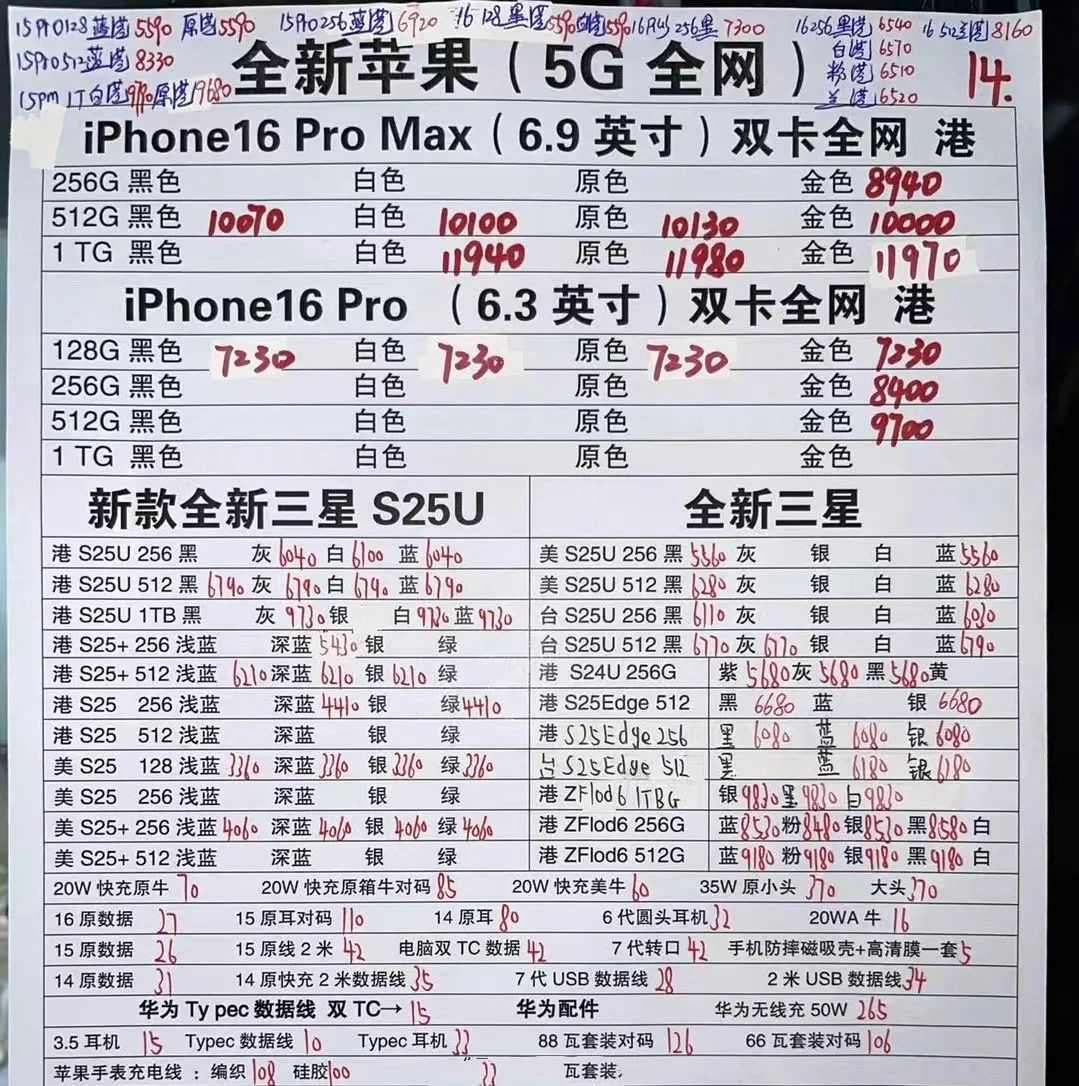 15Pro128 蓝港5590 原港5590 15Pro256蓝港6920 16 128黑港5590白港5590 16Plus256黑7300 16 256黑港6540 16 512兰港8160
15Pro512蓝港8330 白港6570
粉港6510
15pm 1T白港9780原港9680 兰港6520
全新苹果（5G 全网） 14.
iPhone16 Pro Max（6.9 英寸）双卡全网 港
256G 黑色 白色 原色 金色 8940
512G 黑色 10070 白色 10100 原色 10130 金色 10000
1 TG 黑色 白色 11940 原色 11980 金色 11970
iPhone16 Pro （6.3 英寸）双卡全网 港
128G 黑色 7230 白色 7230 原色 7230 金色 7230
256G 黑色 白色 原色 金色 8400
512G 黑色 白色 原色 金色 9700
1 TG 黑色 白色 原色 金色
新款全新三星 S25U 全新三星
港 S25U 256 黑 灰 6040 白 6100 蓝 6040 美 S25U 256 黑 5560 灰 银 白 蓝 5560
港 S25U 512 黑 6790 灰 6790 白 6790 蓝 6790 美 S25U 512 黑 6280 灰 银 白 蓝 6280
港 S25U 1TB 黑 灰 9730 银 白 9730 蓝 9730 台 S25U 256 黑 6110 灰 银 白 蓝 6030
港 S25+ 256 浅蓝 深蓝 5430 银 绿 台 S25U 512 黑 6770 灰 6770 银 白 蓝 6790
港 S25+ 512 浅蓝 6210 深蓝 6210 银 6210 绿 港 S24U 256G 紫 5680 灰 5680 黑 5680 黄
港 S25 256 浅蓝 深蓝 4410 银 绿 4410 港 S25Edge 512 黑 6680 蓝 银 6680
港 S25 512 浅蓝 深蓝 银 绿 港 S25Edge 256 黑 6080 蓝 6080 银 6080
美 S25 128 浅蓝 3360 深蓝 3360 银 3360 绿 3360 台 S25Edge 512 黑 蓝 6180 银 6180
美 S25 256 浅蓝 深蓝 银 绿 港 ZFlod6 1TBG 银 9830 黑 9830 白 9830
美 S25+ 256 浅蓝 4060 深蓝 4060 银 4060 绿 4060 港 ZFlod6 256G 蓝 8530 粉 8480 银 8530 黑 8580 白
美 S25+ 512 浅蓝 深蓝 银 绿 港 ZFlod6 512G 蓝 9180 粉 9180 银 9180 黑 9180 白
20W 快充原牛 70 20W 快充原箱牛对码 85 20W 快充美牛 60 35W 原小头 370 大头 370
16 原数据 27 15 原耳对码 110 14 原耳 80 6 代圆头耳机 32 20WA 牛 16
15 原数据 26 15 原线 2 米 42 电脑双 TC 数据 42 7 代转口 42 手机防摔磁吸壳+高清膜一套 5
14 原数据 31 14 原快充 2 米数据线 35 7 代 USB 数据线 28 2 米 USB 数据线 34
华为 Ty pec 数据线 双 TC→ 15 华为配件 华为无线充 50W 265
3.5 耳机 15 Typec 数据线 10 Typec 耳机 33 88 瓦套装对码 126 66 瓦套装对码 106
苹果手表充电线：编织 108 硅胶 100 33 瓦套装